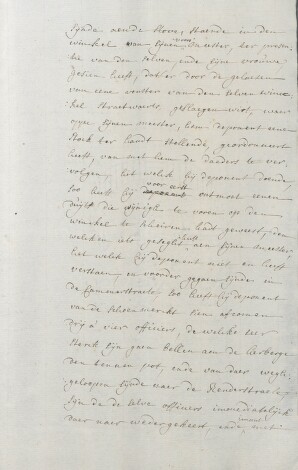 zijnde aende stove, staende inden
winckel van zijnen meester, ter presen-
tie van den selven, ende sijne vrouwe
heeft, dat er door de gelaesen
van eene venster van den selven winc-
kel straetwaerts, geslaegen wirt, waer
opper zijnen meester, hem deponent eenen
stock ter handt stellende, geordonneert
heeft, van met hem de daeders te ver-
volgen, het welck hij deponent doende,
soo heeft hij voor eerst ontmoet eenen
die daegh te voren op den
winckel te hadt geweest, den
welcken iets geseght heeft aen sijnen meester,
het welck hij deponent niet en heeft
verstaen, en voorder gegaen zijnde in
de Cammerstraete, soo heeft hij deponent
van de schoenmerckt sien afcomen
drij à vier officiers, de welcke seer
sterck zijn gaen bellen aen de herberge
den tennen pot, ende van daer wegh-
geloopen zijnde naer de
zijn de selve officiers immediatelijck
daer naer wedergekeert, ende, met